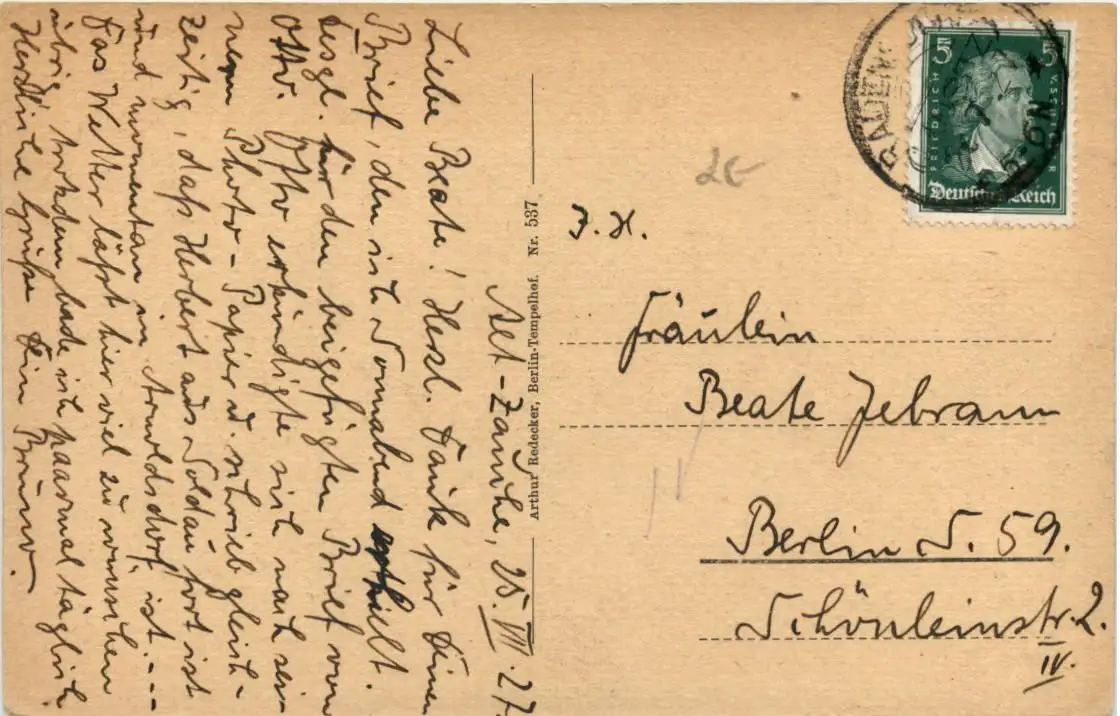 Alt-Zauche, 25.VII.27.
Liebe Beate! Herzl. Dank für Deinen
Brief, den ich Sonnabend erhielt.
Desgl. für den beigefügten Brief von
Otto. Otto erkundigte sich nach sei-
nem Photo-Papier u. schrieb gleich-
zeitig, daß Herbert aus Soldau fort ist
und momentan in Arnoldsdorf ist.---
Das Wetter läßt hier viel zu wünschen
übrig, trotzdem bade ich paarmal täglich.
Herzliche Grüße Dein Bruno.
Arthur Redecker, Berlin-Tempelhof. Nr. 537
2€
FRIEDRICH V. SCHILLER
5 5
Deutsches Reich
J. H.
Fräulein
Beate Jebramm
Berlin S. 59.
Schönleinstr. 2.
IV.